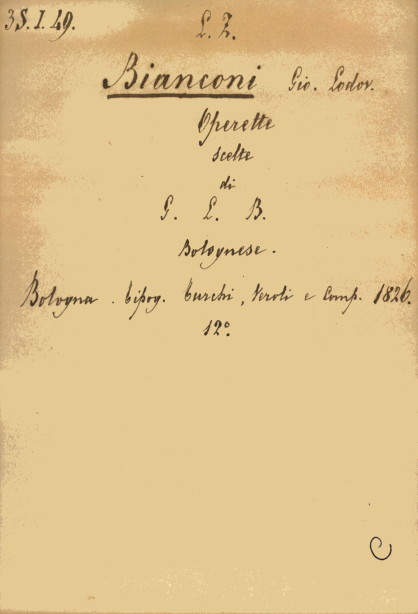 3S. I. 49.
L. Z.
Bianconi Gio. Lodov.
Operette
scelte
di
G. L. B.
Bolognese.
Bologna. Tipog. Turchi, Veroli e Comp. 1826.
12º.
C